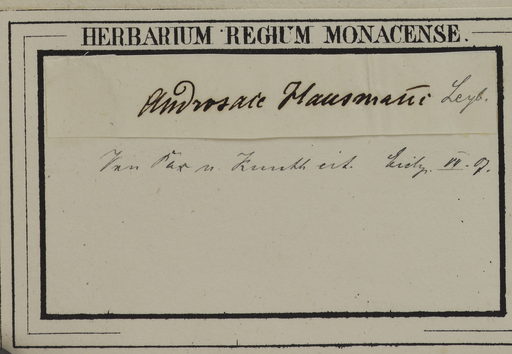 HERBARIUM REGIUM MONACENSE.
Androsace Hausmanni Leyb.
Von Pax u. Knuth cit. VI. 9.